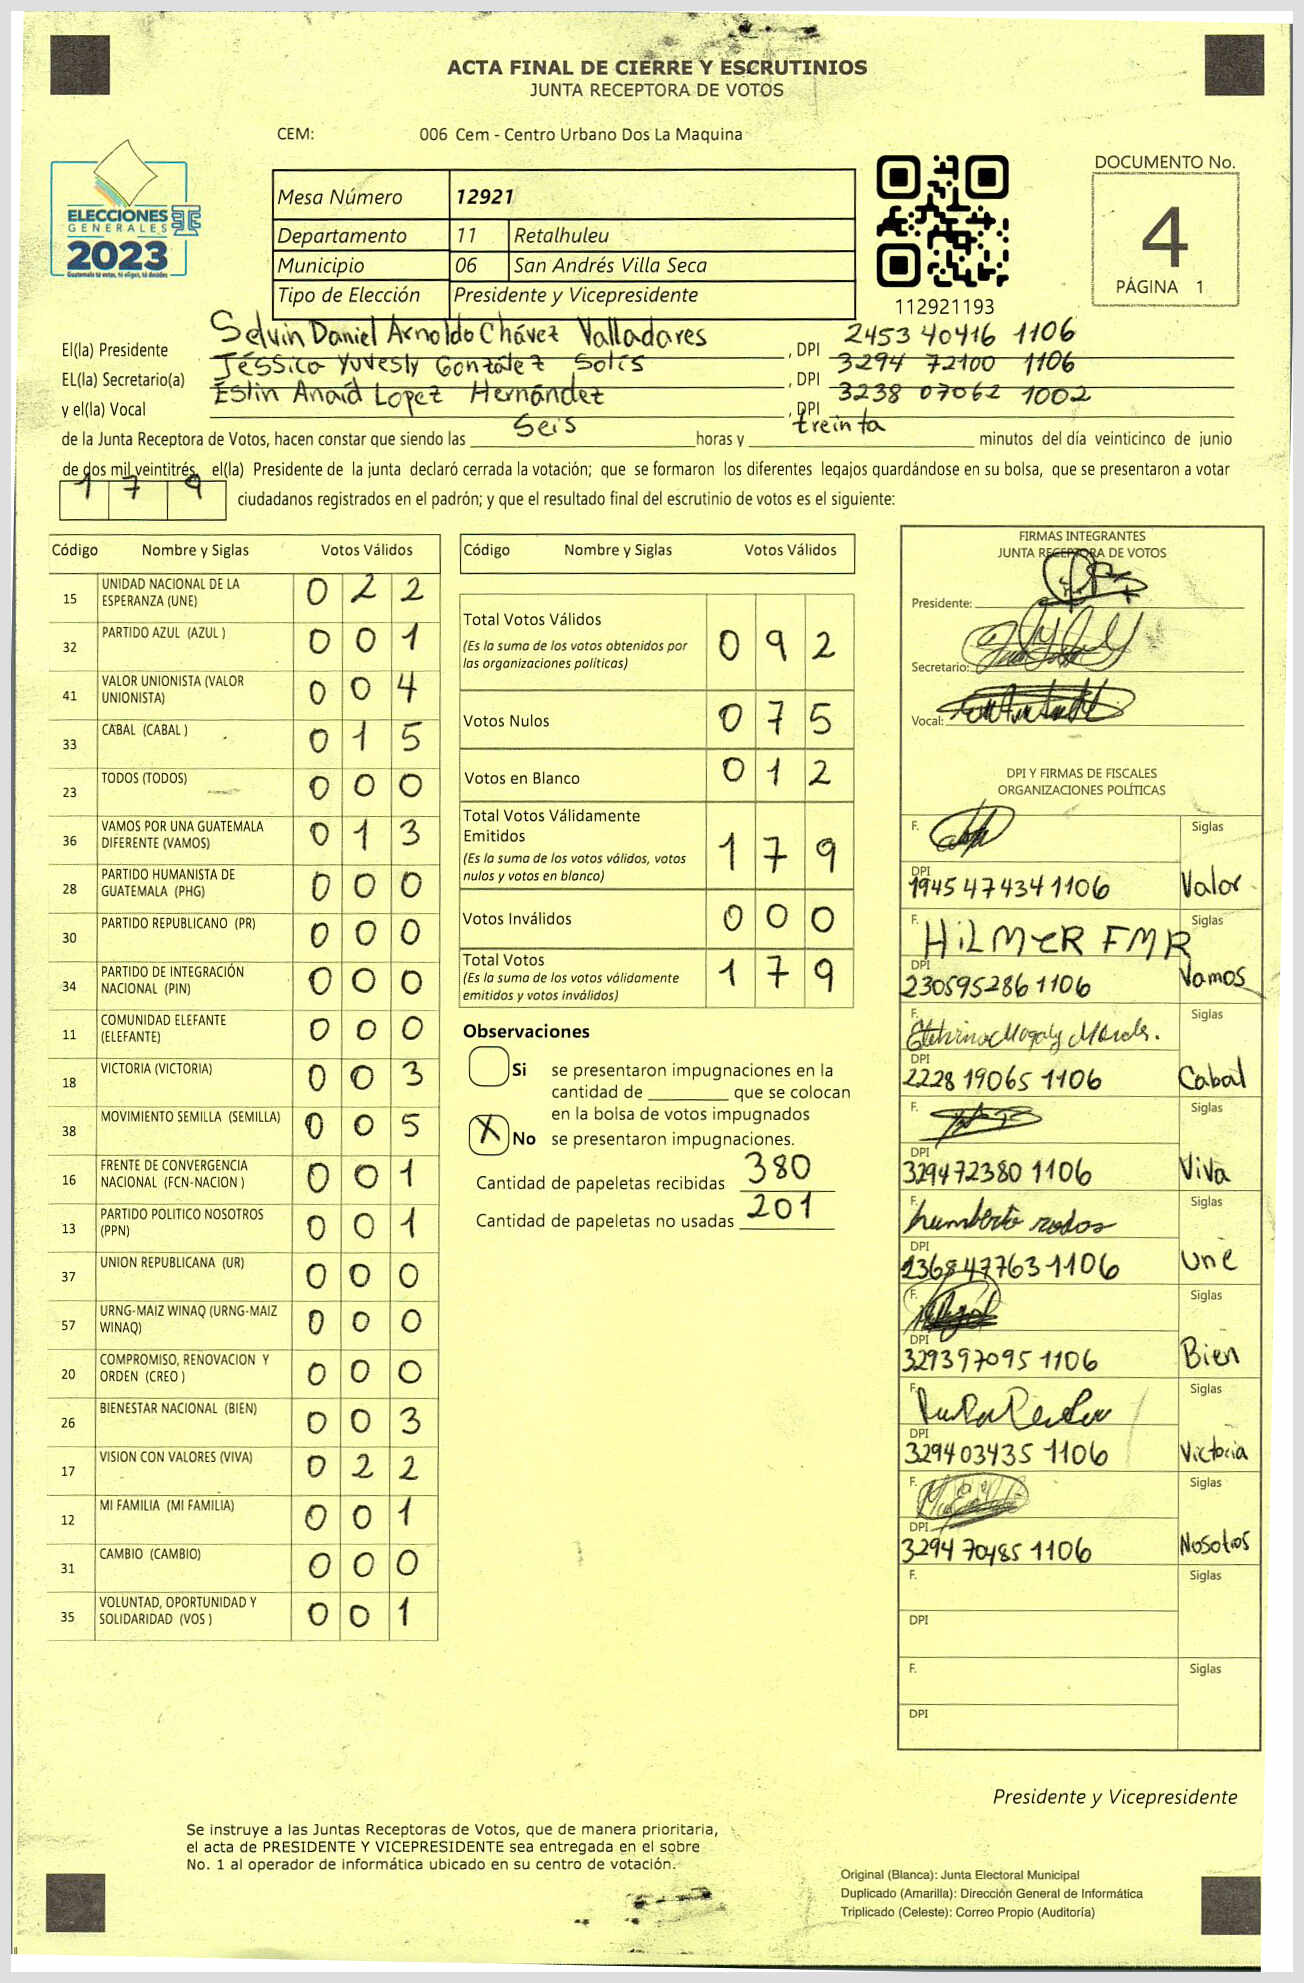 ACTA FINAL DE CIERRE Y ESCRUTINIOS
JUNTA RECEPTORA DE VOTOS
CEM: 006 Cem - Centro Urbano Dos La Maquina
ELECCIONES
GENERALES
2023
Guatemala tú votas, tú eliges, tú decides
Mesa Número 12921
Departamento 11 Retalhuleu
Municipio 06 San Andrés Villa Seca
Tipo de Elección Presidente y Vicepresidente
112921193
DOCUMENTO No.
4
PÁGINA 1
El(la) Presidente Selvin Daniel Arnoldo Chávez Valladares, DPI 2453 40416 1106
EL(la) Secretario(a) Jéssica Yuvesly González Solís, DPI 3294 72100 1106
y el(la) Vocal Eslin Anaíd Lopez Hernández, DPI 3238 07062 1002
de la Junta Receptora de Votos, hacen constar que siendo las Seis horas y treinta minutos del día veinticinco de junio
de dos mil veintitrés, el(la) Presidente de la junta declaró cerrada la votación; que se formaron los diferentes legajos guardándose en su bolsa, que se presentaron a votar
179 ciudadanos registrados en el padrón; y que el resultado final del escrutinio de votos es el siguiente:
Código Nombre y Siglas Votos Válidos
15 UNIDAD NACIONAL DE LA ESPERANZA (UNE) 0 2 2
32 PARTIDO AZUL (AZUL ) 0 0 1
41 VALOR UNIONISTA (VALOR UNIONISTA) 0 0 4
33 CABAL (CABAL ) 0 1 5
23 TODOS (TODOS) 0 0 0
36 VAMOS POR UNA GUATEMALA DIFERENTE (VAMOS) 0 1 3
28 PARTIDO HUMANISTA DE GUATEMALA (PHG) 0 0 0
30 PARTIDO REPUBLICANO (PR) 0 0 0
34 PARTIDO DE INTEGRACIÓN NACIONAL (PIN) 0 0 0
11 COMUNIDAD ELEFANTE (ELEFANTE) 0 0 0
18 VICTORIA (VICTORIA) 0 0 3
38 MOVIMIENTO SEMILLA (SEMILLA) 0 0 5
16 FRENTE DE CONVERGENCIA NACIONAL (FCN-NACION ) 0 0 1
13 PARTIDO POLITICO NOSOTROS (PPN) 0 0 1
37 UNION REPUBLICANA (UR) 0 0 0
57 URNG-MAIZ WINAQ (URNG-MAIZ WINAQ) 0 0 0
20 COMPROMISO, RENOVACION Y ORDEN (CREO ) 0 0 0
26 BIENESTAR NACIONAL (BIEN) 0 0 3
17 VISION CON VALORES (VIVA) 0 2 2
12 MI FAMILIA (MI FAMILIA) 0 0 1
31 CAMBIO (CAMBIO) 0 0 0
35 VOLUNTAD, OPORTUNIDAD Y SOLIDARIDAD (VOS ) 0 0 1
Código Nombre y Siglas Votos Válidos
Total Votos Válidos 0 9 2
(Es la suma de los votos obtenidos por
las organizaciones políticas)
Votos Nulos 0 7 5
Votos en Blanco 0 1 2
Total Votos Válidamente
Emitidos 1 7 9
(Es la suma de los votos válidos, votos
nulos y votos en blanco)
Votos Inválidos 0 0 0
Total Votos 1 7 9
(Es la suma de los votos válidamente
emitidos y votos inválidos)
Observaciones
Si se presentaron impugnaciones en la
cantidad de ________ que se colocan
en la bolsa de votos impugnados
X No se presentaron impugnaciones.
Cantidad de papeletas recibidas 380
Cantidad de papeletas no usadas 201
FIRMAS INTEGRANTES
JUNTA RECEPTORA DE VOTOS
Presidente:
Secretario:
Vocal:
DPI Y FIRMAS DE FISCALES
ORGANIZACIONES POLÍTICAS
F. Siglas
DPI 1945 47434 1106 Valor
F. HiLMER FMR Siglas
DPI 230595286 1106 Vamos
F. Siglas
DPI 2228 19065 1106 Cabal
F. Siglas
DPI 329472380 1106 Viva
F. humberto rodas Siglas
DPI 2368 47763 1106 Une
F. Siglas
DPI 329397095 1106 Bien
F. Siglas
DPI 329403435 1106 Victoria
F. Siglas
DPI 3294 70485 1106 Nosotros
F. Siglas
DPI
F. Siglas
DPI
Presidente y Vicepresidente
Se instruye a las Juntas Receptoras de Votos, que de manera prioritaria,
el acta de PRESIDENTE Y VICEPRESIDENTE sea entregada en el sobre
No. 1 al operador de informática ubicado en su centro de votación.
Original (Blanca): Junta Electoral Municipal
Duplicado (Amarilla): Dirección General de Informática
Triplicado (Celeste): Correo Propio (Auditoría)